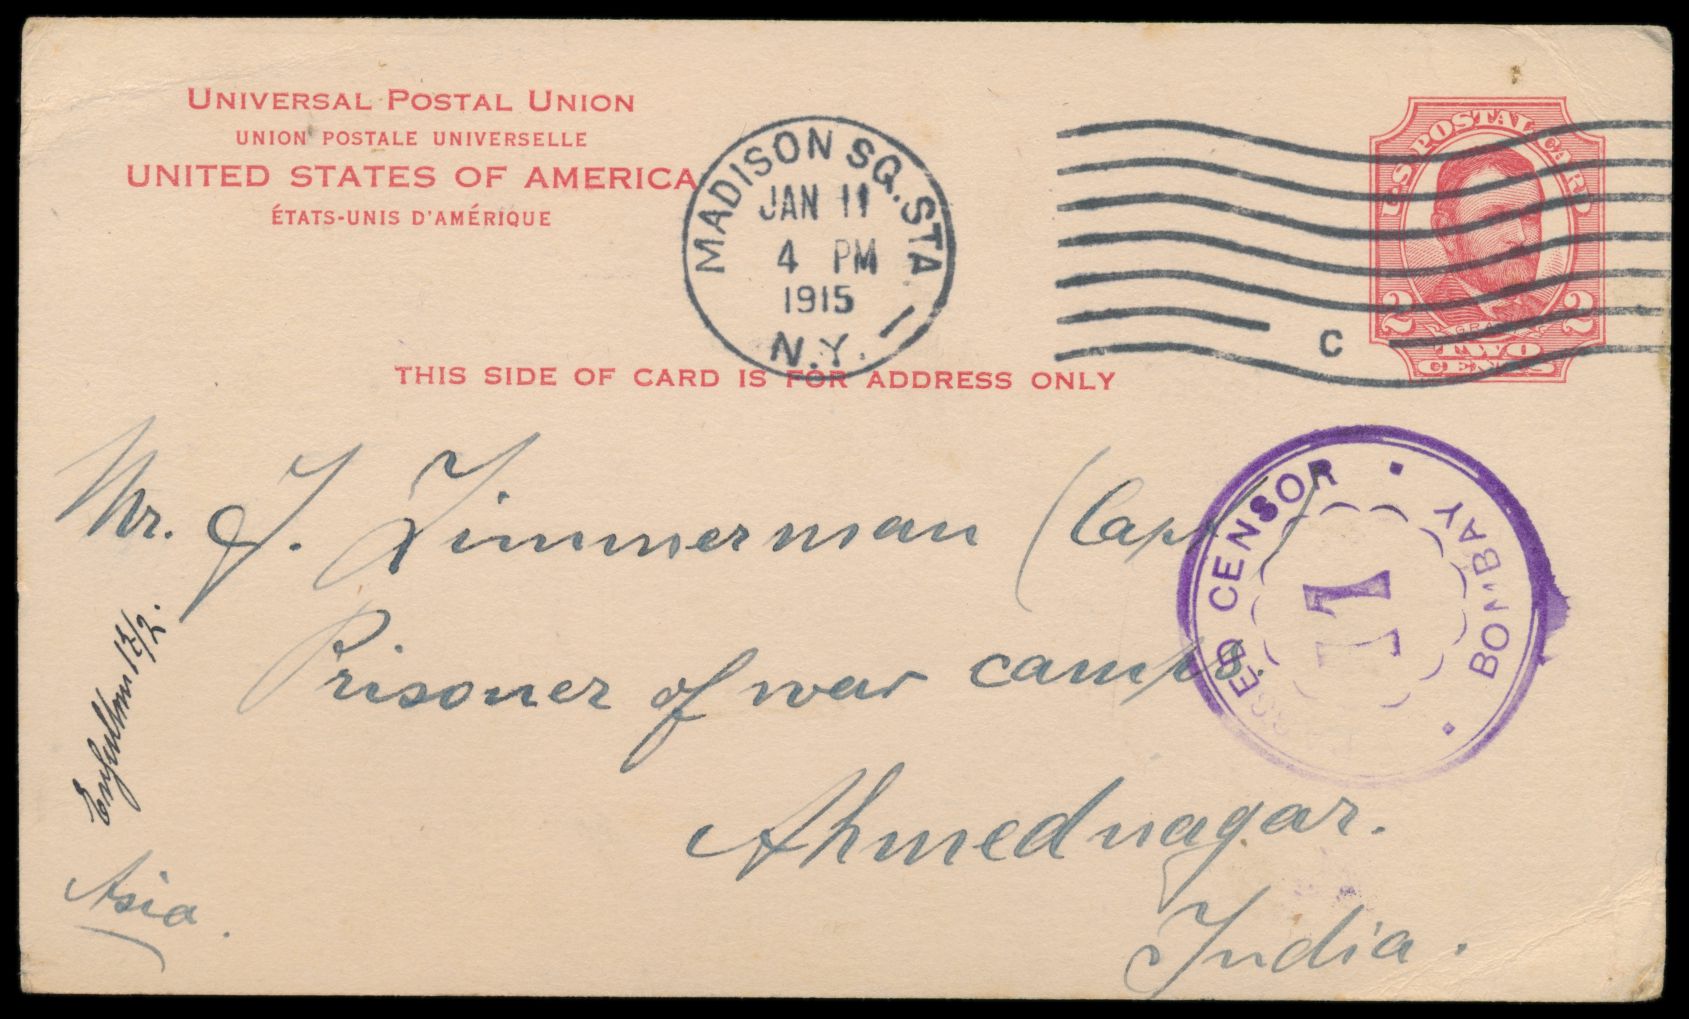 UNIVERSAL POSTAL UNION
UNION POSTALE UNIVERSELLE
UNITED STATES OF AMERICA
ÉTATS-UNIS D'AMÉRIQUE
MADISON SQ. STA.
JAN 11
4 PM
1915
N.Y.
C
U.S. POSTAL CARD
2 2
GRANT
TWO
CENTS
THIS SIDE OF CARD IS FOR ADDRESS ONLY
Mr. J. Zimmerman (Capt.)
Prisoner of war camps.
Ahmednagar.
India.
Asia.
CENSOR
BOMBAY